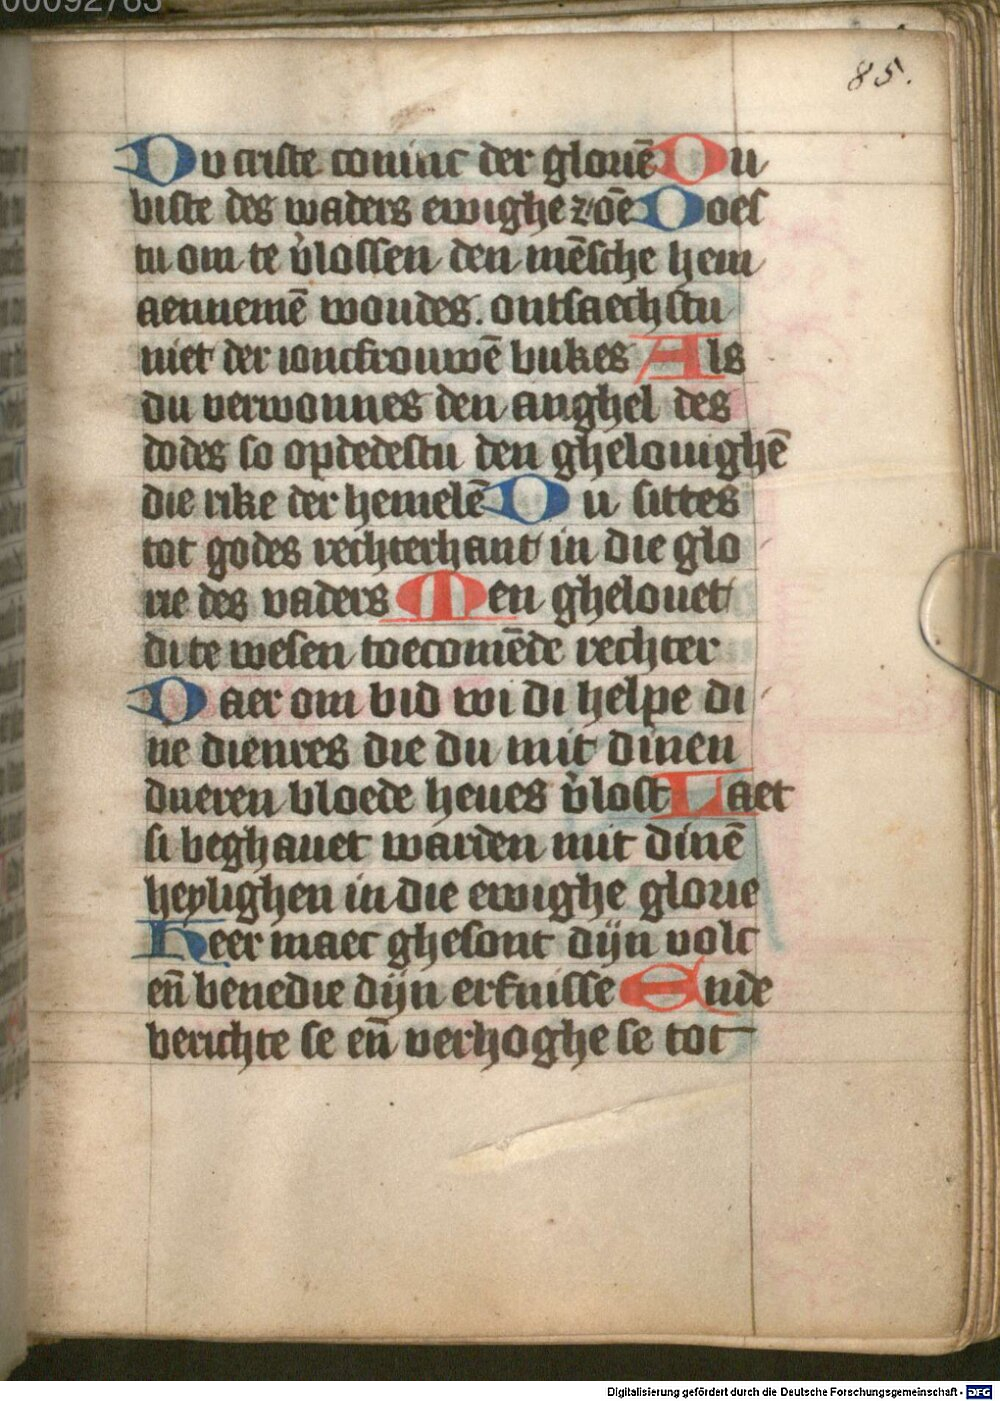 00092763
85.
Du criste coninc der glouē Du
biste des waders ewighe zōe Does
tu om te v̓lossen den mēsche hem
aennemē woudes. ontsaechstu
niet der ioncfrouwē bukes Als
du verwonnes den anghel des
dodes so opdedestu den ghelouighē
die rike der hemelē Du sittes
tot godes rechterhant in die glo
rie des vaders Men ghelouet
di te wesen toecomēde rechter
Daer om bid wi di helpe di
ne dienres die du mit dinen
dueren bloede heues v̓lost Laet
si beghauet warden mit dinē
heylighen in die ewighe glorie
Heer maec ghesont dijn volc
en̄ benedie dijn erfnisse Ende
berichte se en̄ verhoghe se tot
Digitalisierung gefördert durch die Deutsche Forschungsgemeinschaft - DFG